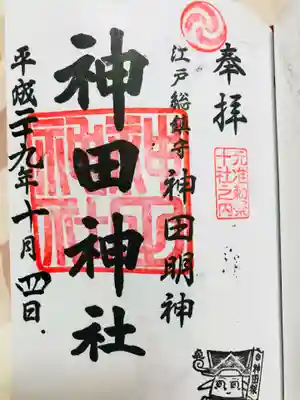 奉拝
元准勅祭
十社之内
江戸総鎮守 神田明神
神田神社
平成二十九年十月四日